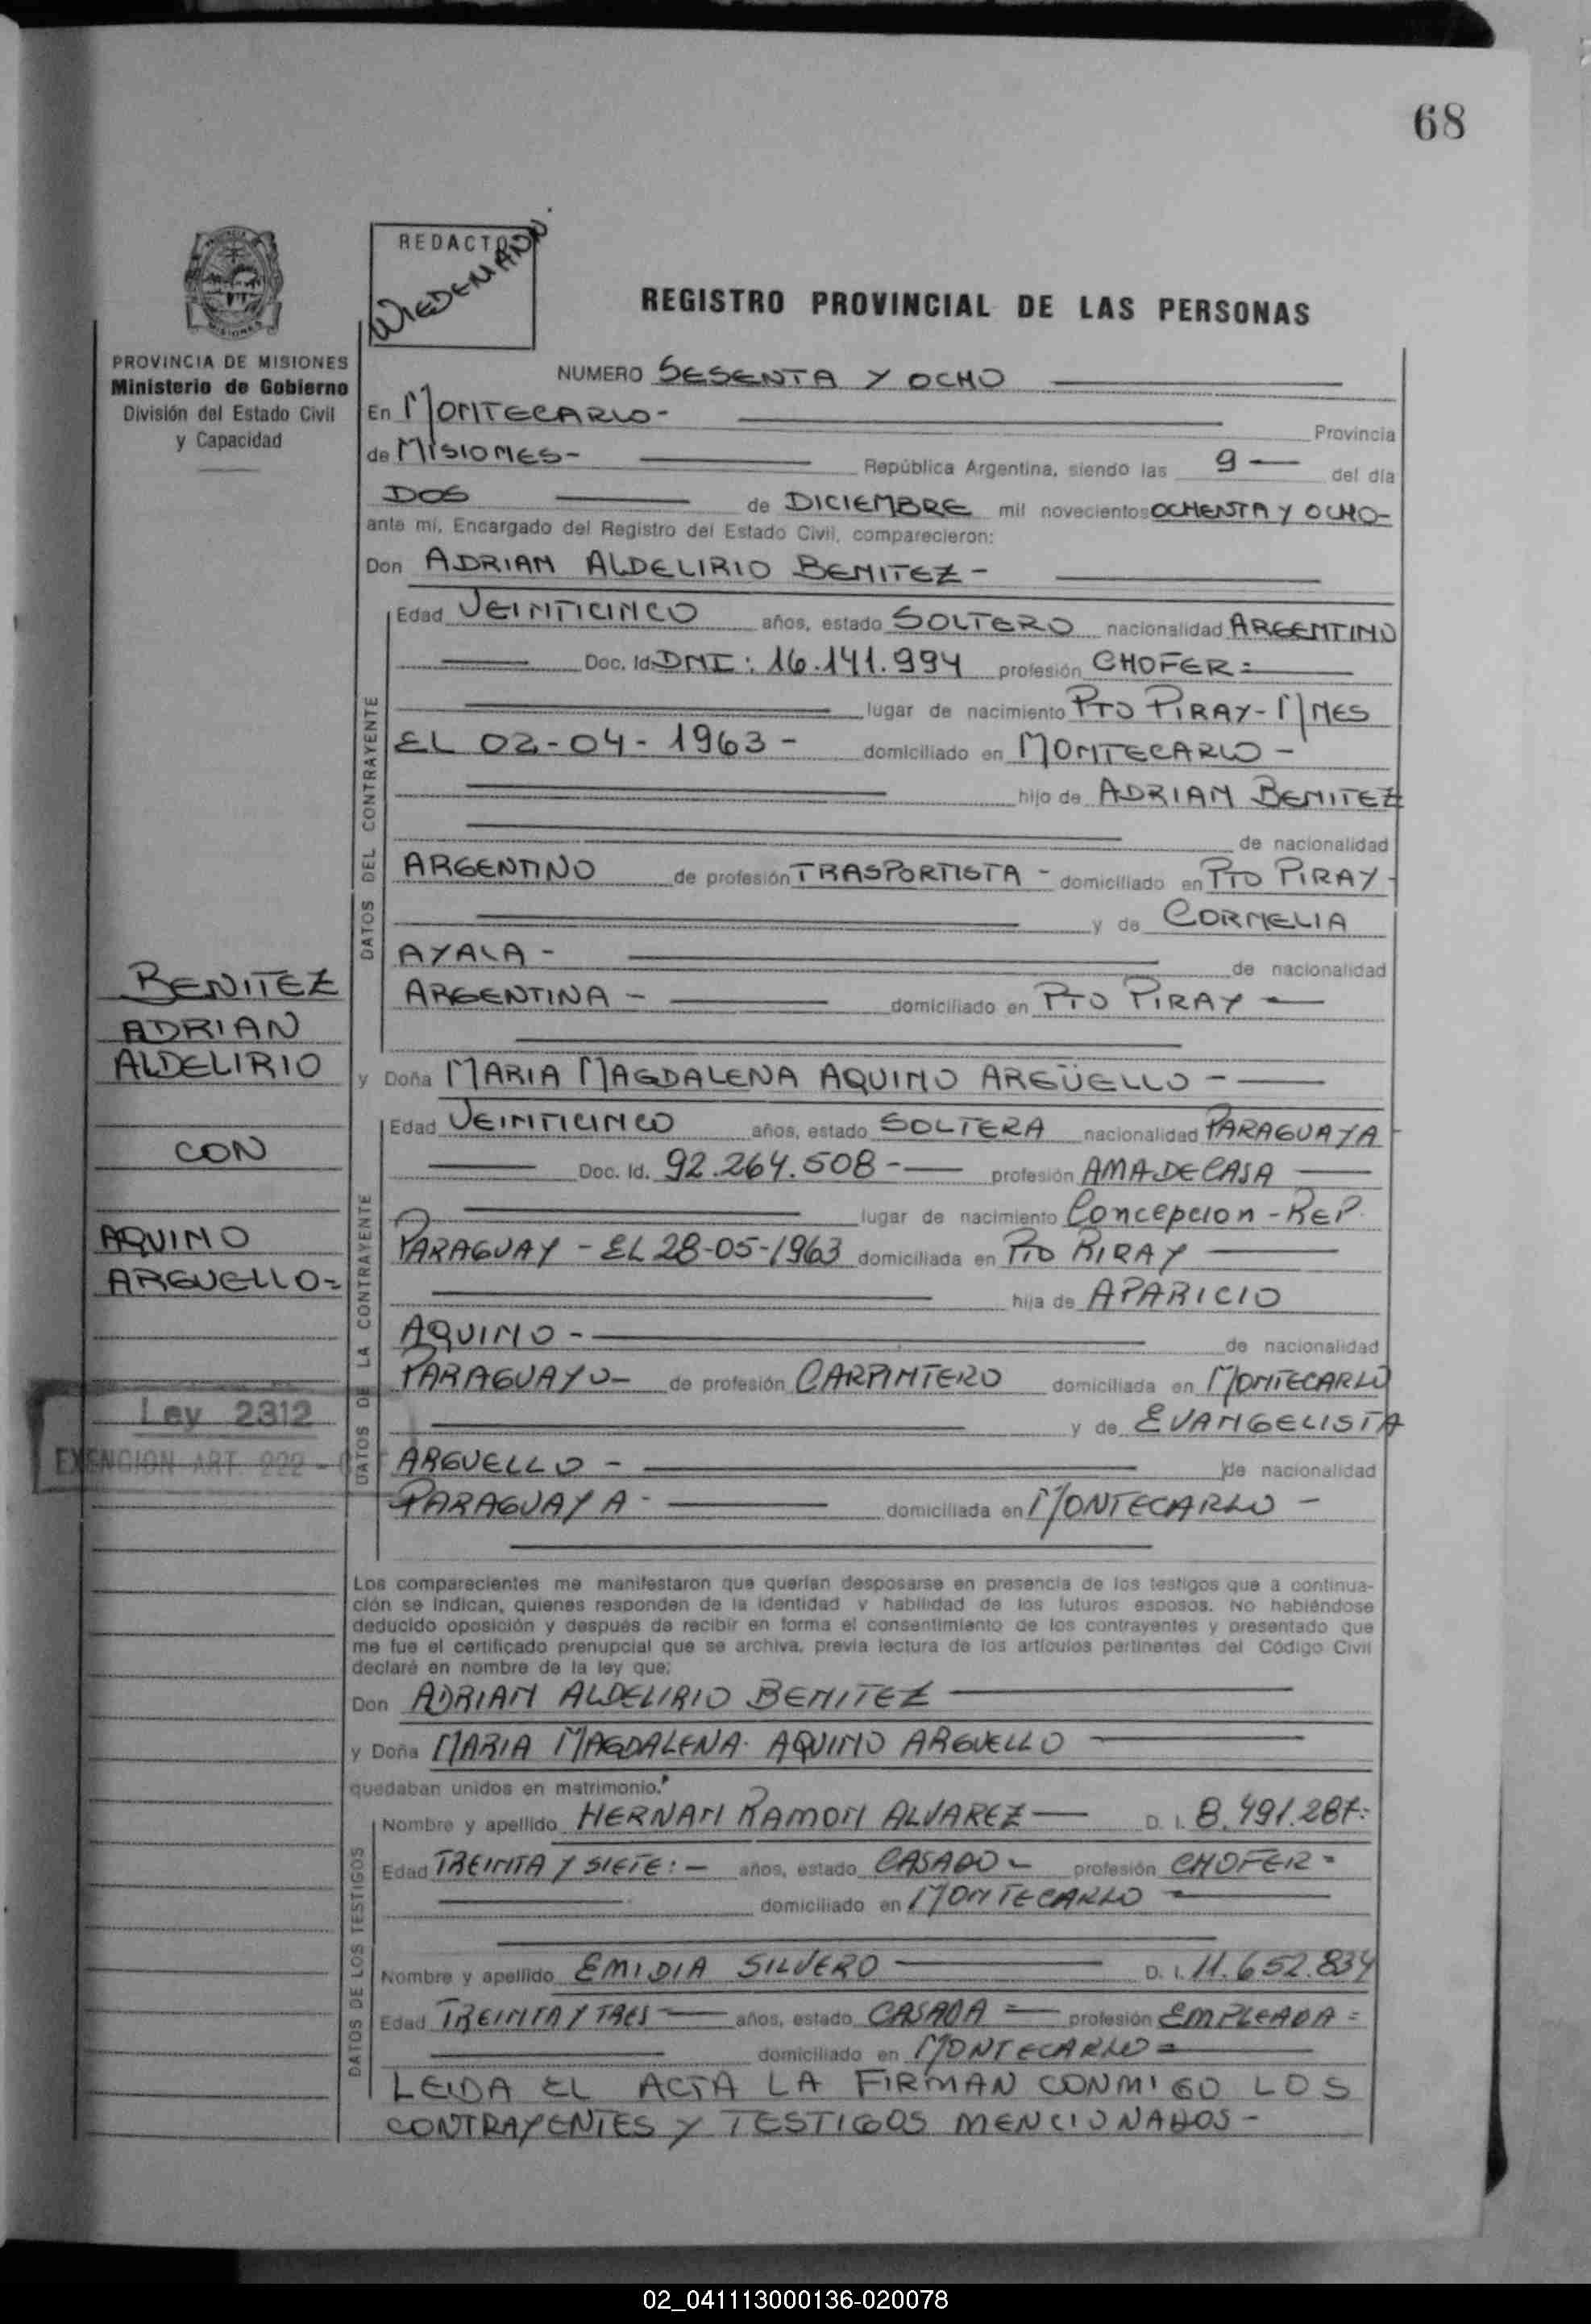 68
REDACTOR
WIEDEMANN.
REGISTRO PROVINCIAL DE LAS PERSONAS
PROVINCIA DE MISIONES
Ministerio de Gobierno
División del Estado Civil
y Capacidad
NUMERO SESENTA Y OCHO
En MONTECARLO- Provincia
de MISIONES- República Argentina, siendo las 9 — del día
DOS de DICIEMBRE mil novecientos OCHENTA Y OCHO-
ante mí, Encargado del Registro del Estado Civil, comparecieron:
Don ADRIAN ALDELIRIO BENITEZ-
DATOS DEL CONTRAYENTE
Edad VEINTICINCO años, estado SOLTERO nacionalidad ARGENTINO
Doc. Id. DNI: 16.141.994 profesión CHOFER=
lugar de nacimiento PTO PIRAY-MNES
EL 02-04-1963- domiciliado en MONTECARLO-
hijo de ADRIAN BENITEZ
de nacionalidad
ARGENTINO de profesión TRASPORTISTA - domiciliado en PTO PIRAY-
y de CORNELIA
AYALA - de nacionalidad
ARGENTINA - domiciliado en PTO PIRAY —
y Doña MARIA MAGDALENA AQUINO ARGÜELLO -
DATOS DE LA CONTRAYENTE
Edad VEINTICINCO años, estado SOLTERA nacionalidad PARAGUAYA
Doc. Id. 92.264.508- profesión AMA DE CASA
lugar de nacimiento Concepcion - REP.
PARAGUAY - EL 28-05-1963 domiciliada en PTO PIRAY
hija de APARICIO
AQUINO - de nacionalidad
PARAGUAYO- de profesión CARPINTERO domiciliada en MONTECARLO
y de EVANGELISTA
ARGUELLO - de nacionalidad
PARAGUAYA- domiciliada en MONTECARLO -
BENITEZ
ADRIAN
ALDELIRIO
CON
AQUINO
ARGUELLO=
Ley 2312
EXENCION ART. 222 -
Los comparecientes me manifestaron que querían desposarse en presencia de los testigos que a continua-
ción se indican, quienes responden de la identidad y habilidad de los futuros esposos. No habiéndose
deducido oposición y después de recibir en forma el consentimiento de los contrayentes y presentado que
me fue el certificado prenupcial que se archiva, previa lectura de los artículos pertinentes del Código Civil
declaré en nombre de la ley que:
Don ADRIAN ALDELIRIO BENITEZ
y Doña MARIA MAGDALENA AQUINO ARGUELLO
quedaban unidos en matrimonio.
DATOS DE LOS TESTIGOS
Nombre y apellido HERNAN RAMON ALVAREZ — D. I. 8.491.287=
Edad TREINTA Y SIETE:- años, estado CASADO- profesión CHOFER-
domiciliado en MONTECARLO
Nombre y apellido EMIDIA SILVERO D. I. 11.652.834
Edad TREINTA Y TRES — años, estado CASADA = profesión EMPLEADA=
domiciliado en MONTECARLO=
LEIDA EL ACTA LA FIRMAN CONMIGO LOS
CONTRAYENTES Y TESTIGOS MENCIONADOS-
02_041113000136-020078